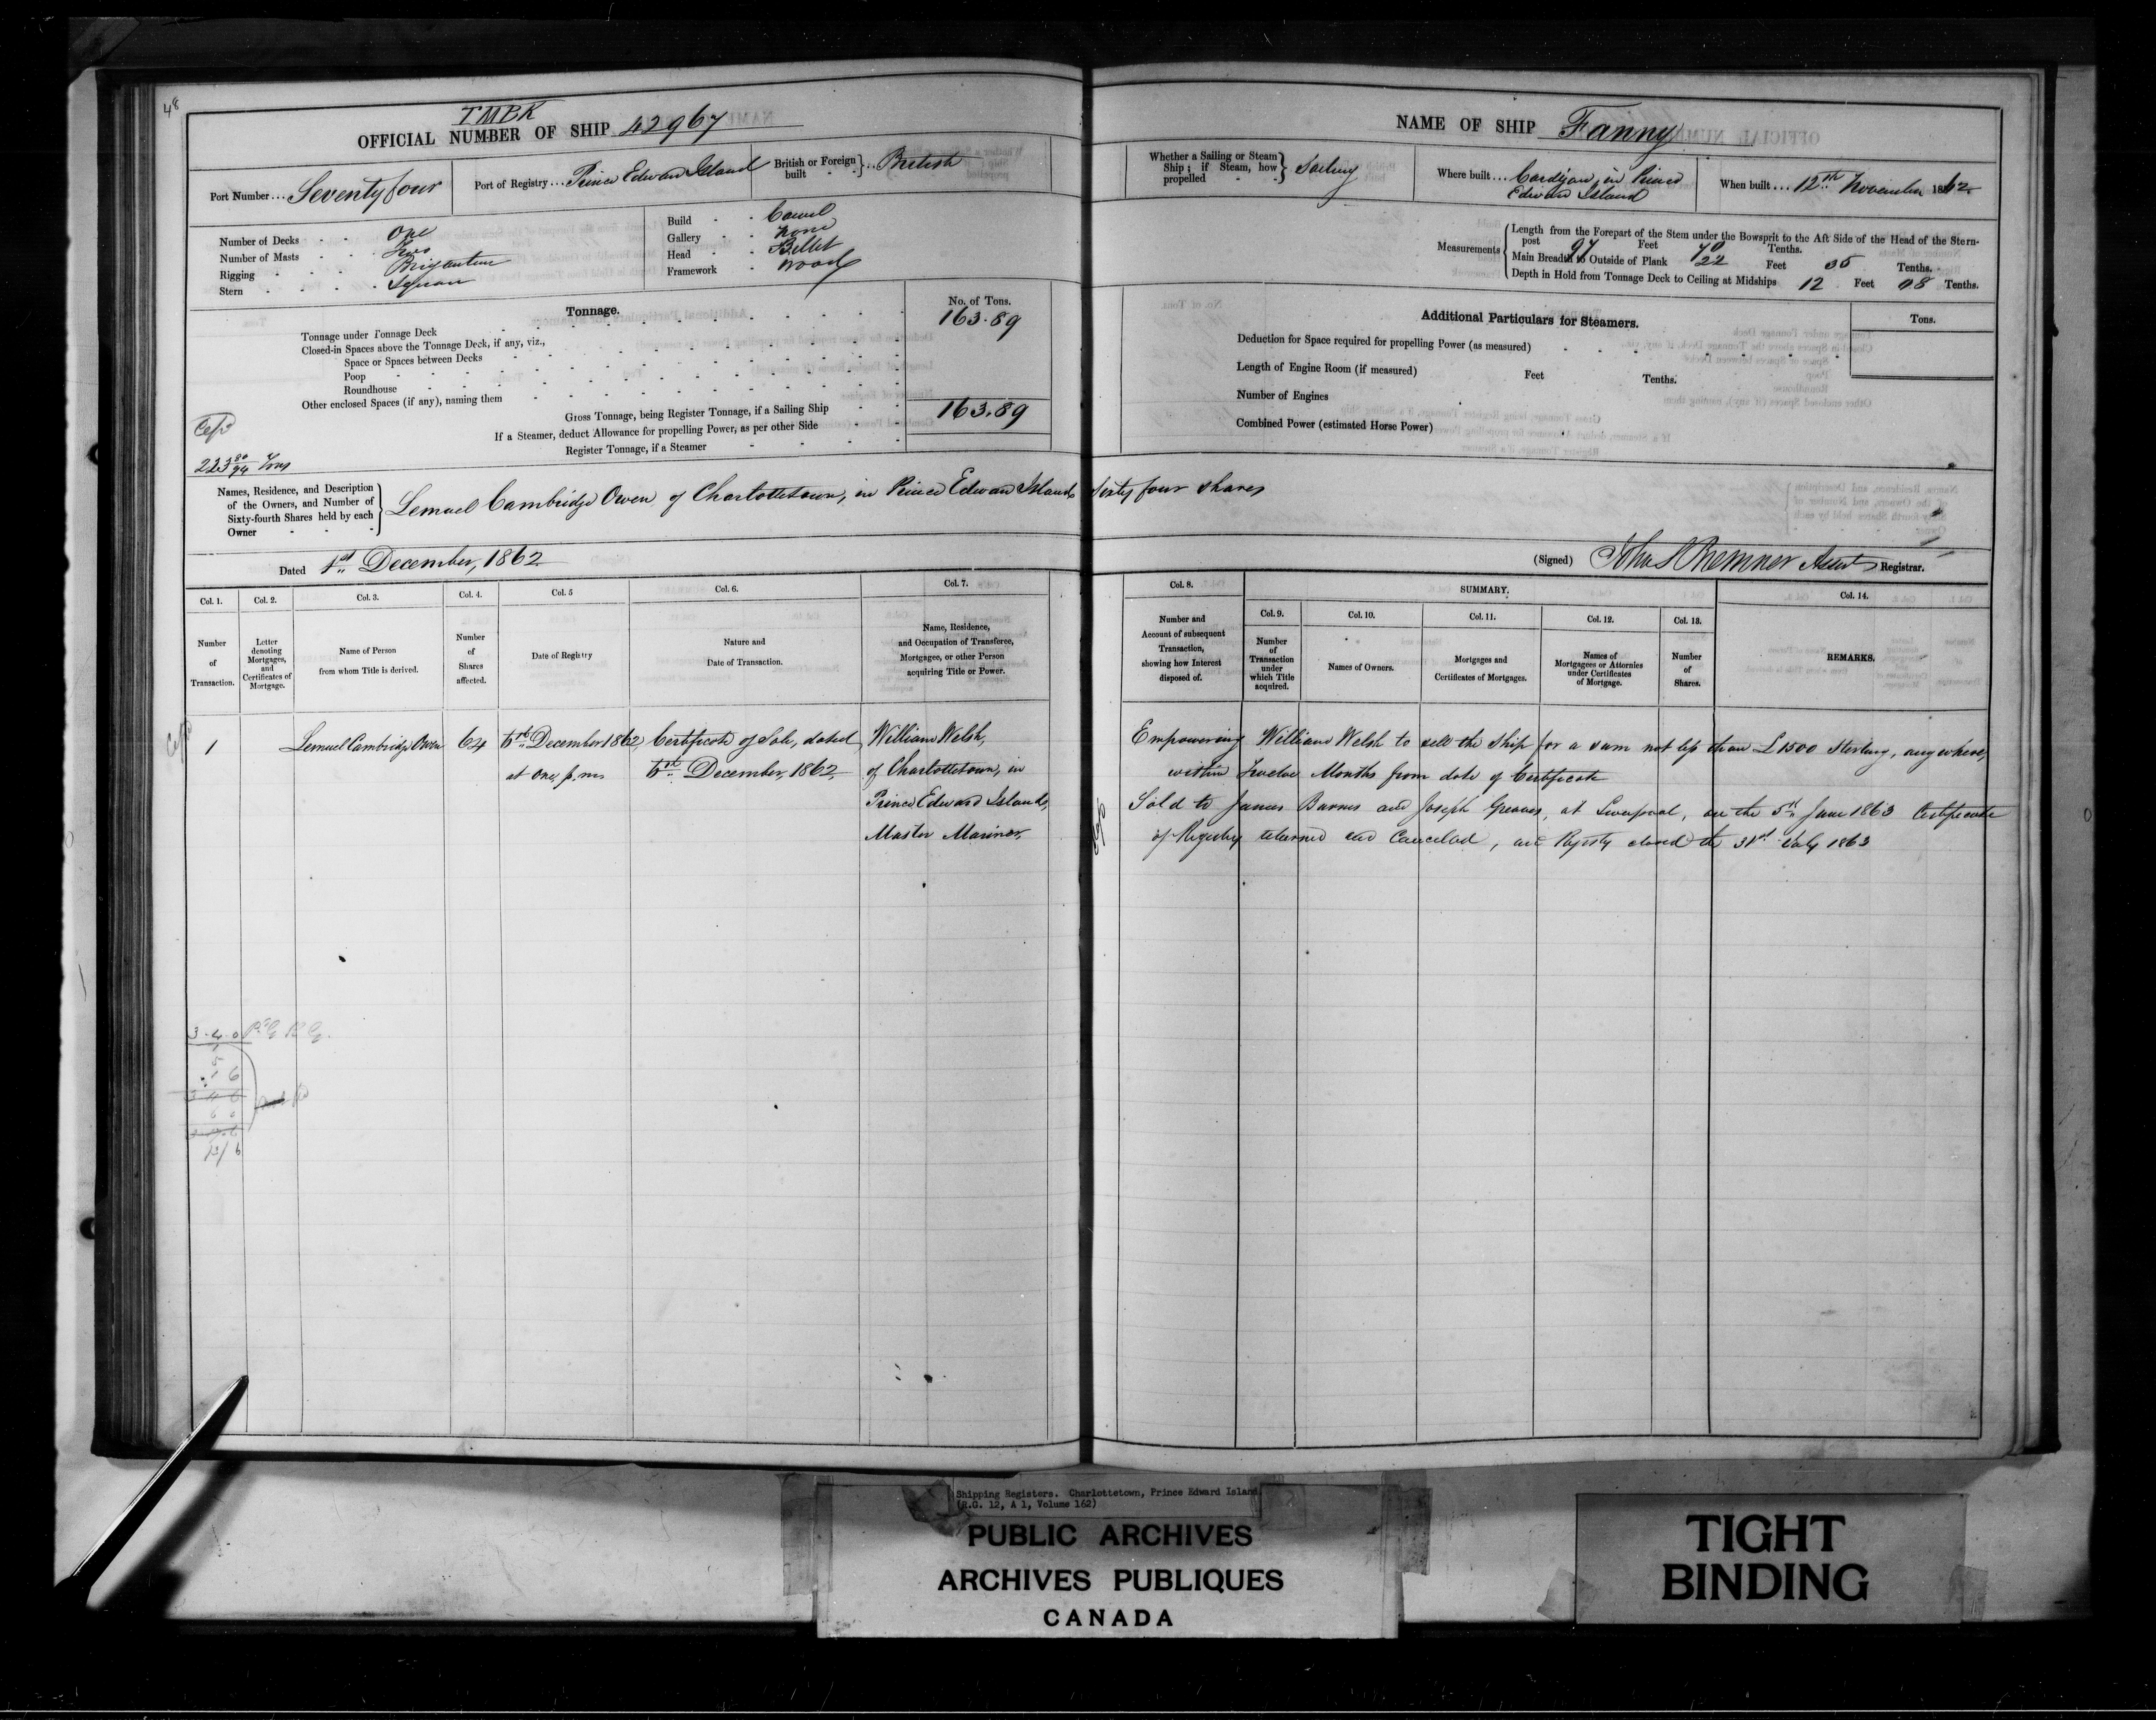 48
TMBK
OFFICIAL NUMBER OF SHIP 42967
Port Number ... Seventy four
Port of Registry ... Prince Edward Island
British or Foreign built } .. British
Number of Decks One
Number of Masts Two
Rigging Brigantine
Stern Square
Build Carvel
Gallery None
Head Billet
Framework Wood
Tonnage.
No. of Tons.
Tonnage under Tonnage Deck 163.89
Closed-in Spaces above the Tonnage Deck, if any, viz.,
Space or Spaces between Decks
Poop
Roundhouse
Other enclosed Spaces (if any), naming them
Gross Tonnage, being Register Tonnage, if a Sailing Ship 163.89
If a Steamer, deduct Allowance for propelling Power, as per other Side
Register Tonnage, if a Steamer
223 80/94 Tons
Names, Residence, and Description of the Owners, and Number of Sixty-fourth Shares held by each Owner
Lemuel Cambridge Owen of Charlottetown, in Prince Edward Island, Sixty four shares
Dated 1st December, 1862
NAME OF SHIP Fanny
Whether a Sailing or Steam Ship; if Steam, how propelled } Sailing
Where built ... Cardigan, in Prince
Edward Island
When built ... 12th November 1862
Measurements
Length from the Forepart of the Stem under the Bowsprit to the Aft Side of the Head of the Stern-
post 97 Feet 70 Tenths.
Main Breadth to Outside of Plank 22 Feet 35 Tenths.
Depth in Hold from Tonnage Deck to Ceiling at Midships 12 Feet 08 Tenths.
Additional Particulars for Steamers.
Tons.
Deduction for Space required for propelling Power (as measured)
Length of Engine Room (if measured) Feet Tenths.
Number of Engines
Combined Power (estimated Horse Power)
(Signed) John S Bremner Assist Registrar.
Col. 1.
Number of Transaction.
Col. 2.
Letter denoting Mortgages, and Certificates of Mortgage.
Col. 3.
Name of Person from whom Title is derived.
Col. 4.
Number of Shares affected.
Col. 5
Date of Registry
Col. 6.
Nature and Date of Transaction.
Col. 7.
Name, Residence, and Occupation of Transferee, Mortgagee, or other Person acquiring Title or Power.
Col. 8.
Number and Account of subsequent Transaction, showing how Interest disposed of.
SUMMARY.
Col. 9.
Number of Transaction under which Title acquired.
Col. 10.
Names of Owners.
Col. 11.
Mortgages and Certificates of Mortgages.
Col. 12.
Names of Mortgagees or Attornies under Certificates of Mortgage.
Col. 13.
Number of Shares.
Col. 14.
REMARKS.
1
Lemuel Cambridge Owen
64
December 1862
at one p.m.
Certificate of Sale, dated
December, 1862
William Welsh,
of Charlottetown, in
Prince Edward Island,
Master Mariner,
Empowering William Welsh to sell the Ship for a sum not less than £1500 Sterling, anywhere,
within Twelve Months from date of Certificate
Sold to James Barnes and Joseph Greaves, at Liverpool, on the 5th June 1863 Certificate
of Registry returned and Cancelled, and Registry closed the 31st July 1863
3.4.0
Shipping Registers. Charlottetown, Prince Edward Island
(R.G. 12, A 1, Volume 162)
PUBLIC ARCHIVES
ARCHIVES PUBLIQUES
CANADA
TIGHT
BINDING